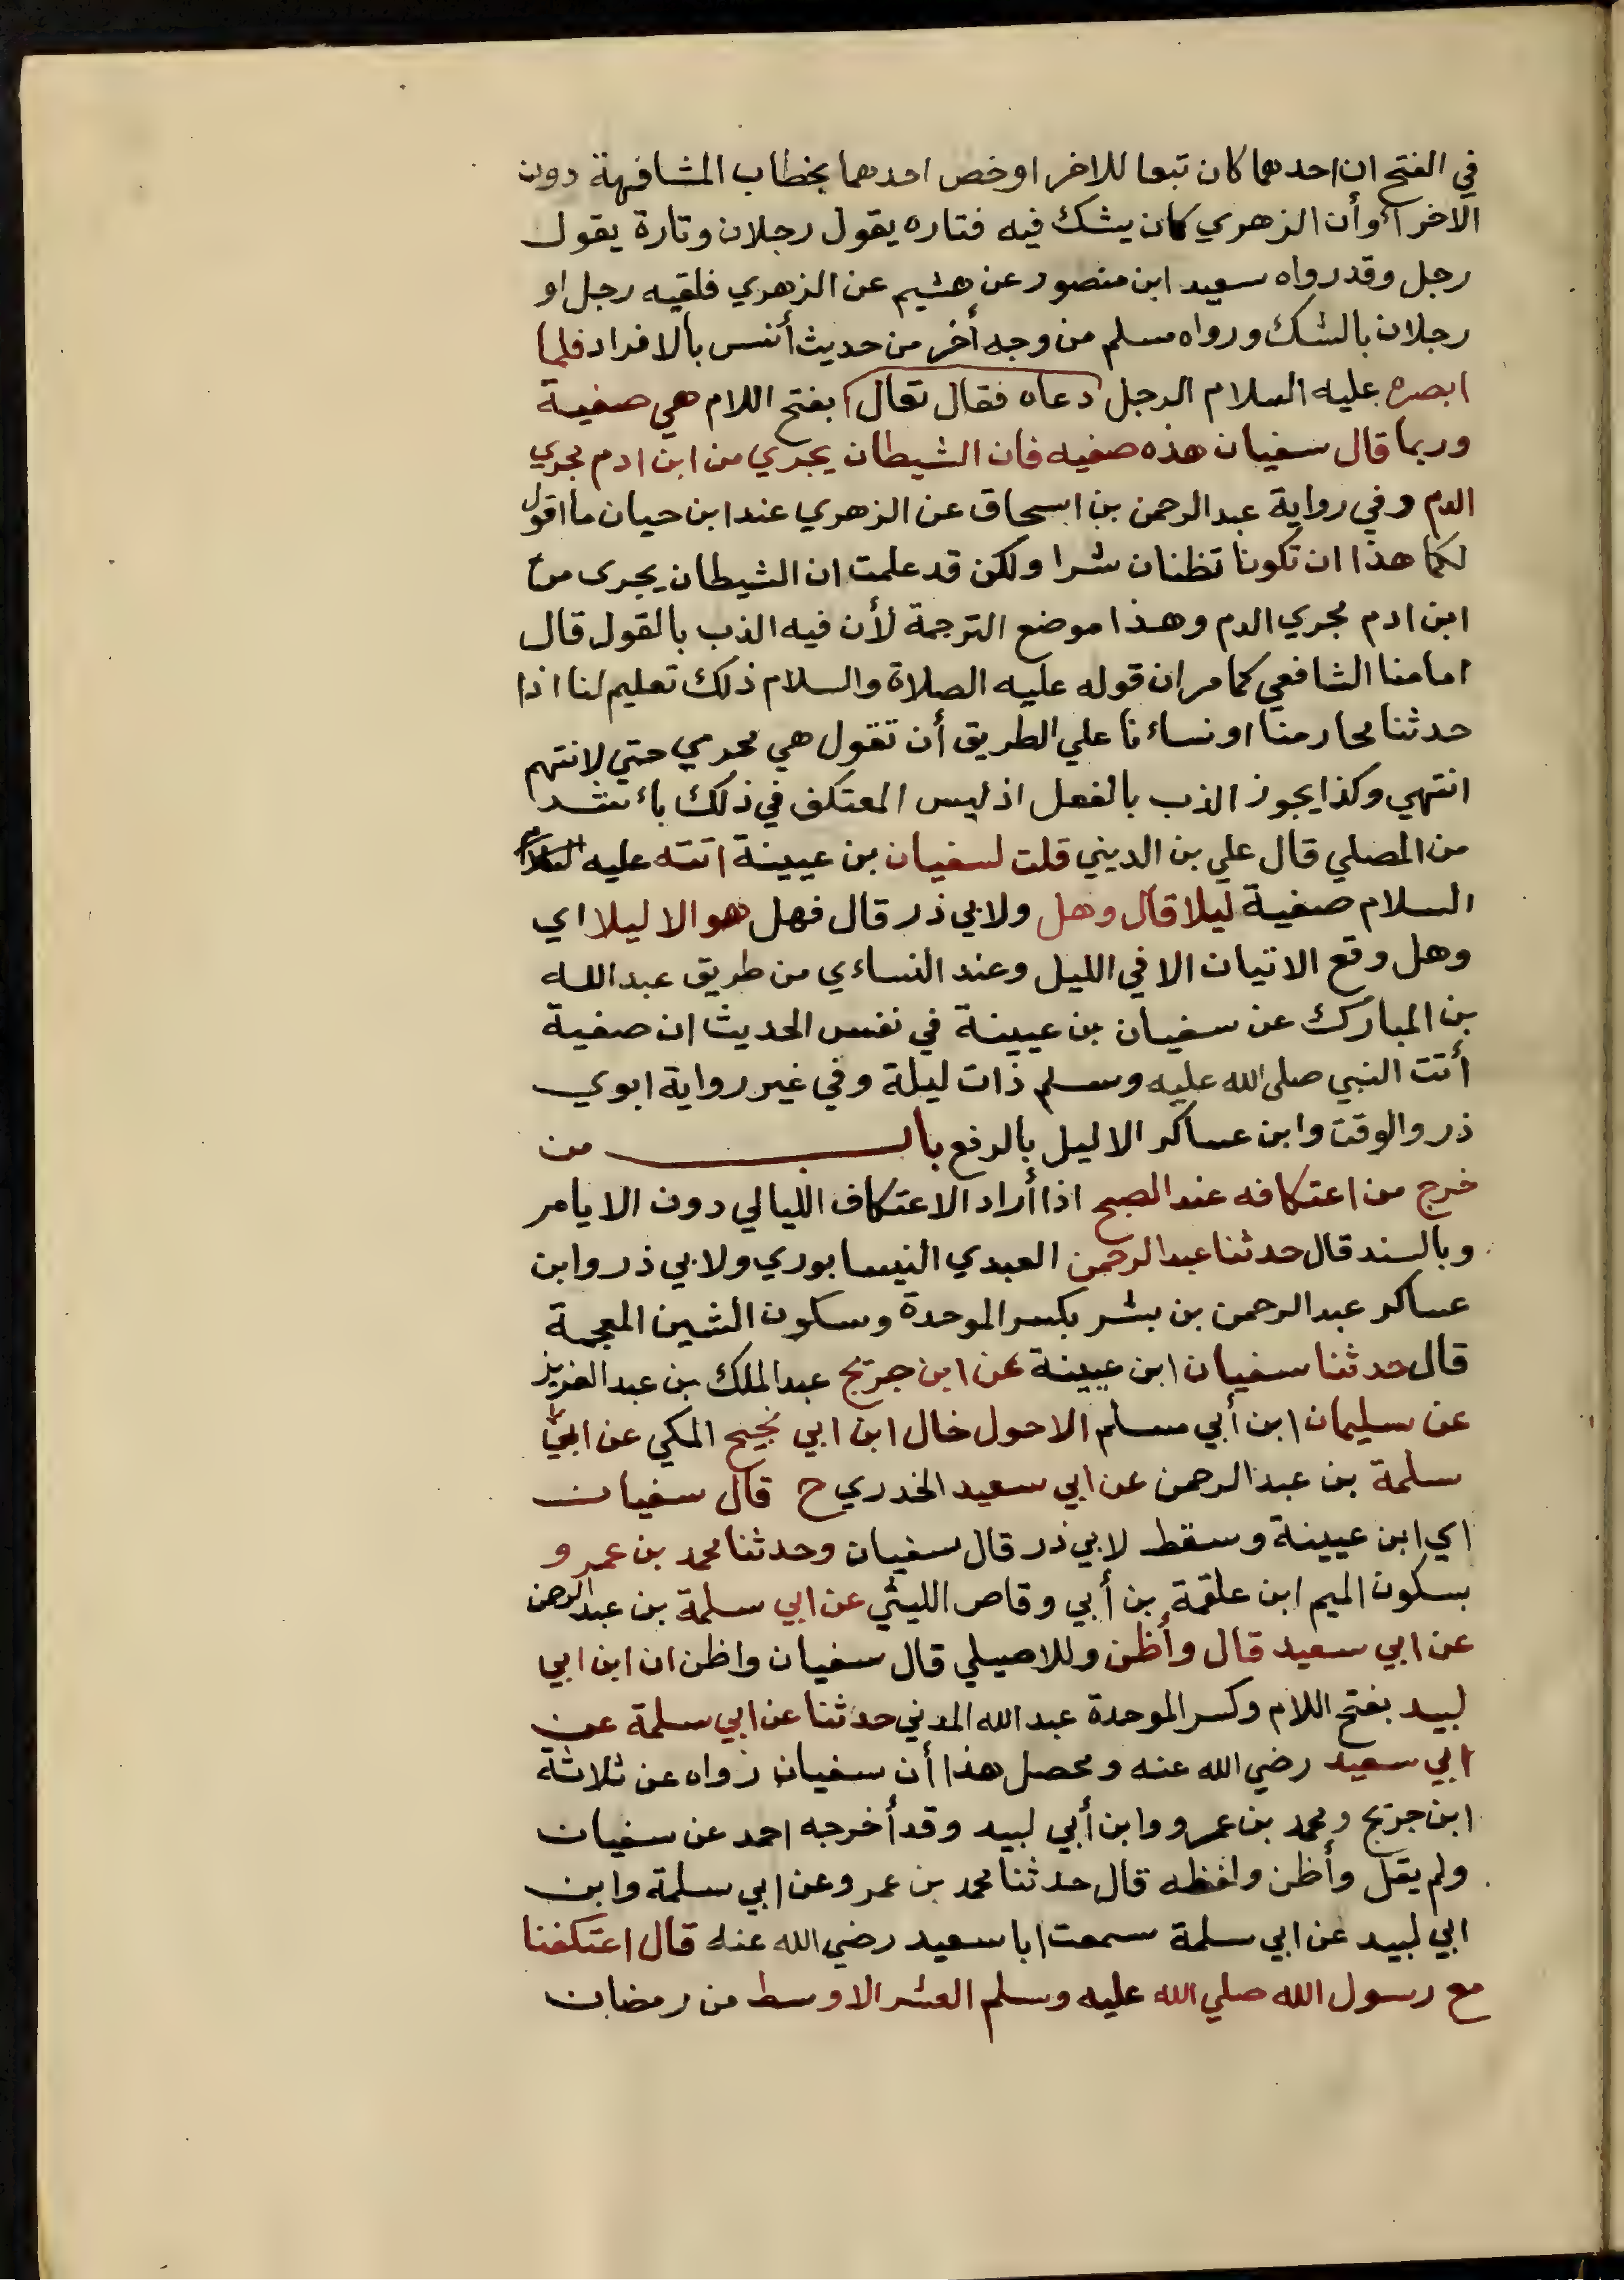 في الفتح ان احدهما كان تبعا للاخر او خص احدهما بخطاب المشافهة دون
الاخر أو أن الزهري كان يشك فيه فتاره يقول رجلان وتارة يقول
رجل وقد رواه سعيد ابن منصور عن هشيم عن الزهري فلقيه رجل او
رجلان بالشك ورواه مسلم من وجه أخر من حديث أنس بالافراد فلما
ابصره عليه السلام الرجل دعاه فقال تعال بفتح اللام هي صفية
وربما قال سفيان هذه صفيه فان الشيطان يجري من ابن ادم مجري
الدم وفي رواية عبد الرحمن بن اسحاق عن الزهري عند ابن حيان ما اقول
لكما هذا ان تكونا تظنان شرا ولكن قد علمت ان الشيطان يجرى من
ابن ادم مجري الدم وهذا موضع الترجمة لأن فيه الذب بالقول قال
امامنا الشافعي كما مر ان قوله عليه الصلاة والسلام ذلك تعليم لنا اذا
حدثنا محارمنا او نساءنا علي الطريق أن نقول هي محرمي حتي لا نتهم
انتهي وكذا يجوز الذب بالفعل اذ ليس المعتكف في ذلك باشد
من المصلي قال علي بن الديني قلت لسفيان بن عيينة اتته عليه
السلام صفية ليلا قال وهل ولابي ذر قال فهل هو الا ليلا اي
وهل وقع الاتيان الا في الليل وعند النساءي من طريق عبد الله
بن المبارك عن سفيان بن عيينة في نفس الحديث ان صفية
أتت النبي صلى الله عليه وسلم ذات ليلة وفي غير رواية ابوي
ذر والوقت وابن عساكر الا ليل بالرفع باب من
خرج من اعتكافه عند الصبح اذا أراد الاعتكاف الليالي دون الايام
وبالسند قال حدثنا عبد الرحمن العبدي النيسابوري ولابي ذر وابن
عساكر عبد الرحمن بن بشر بكسر الموحدة وسكون الشين المعجمة
قال حدثنا سفيان ابن عيينة عن ابن جريج عبد الملك بن عبد العزيز
عن سليمان ابن أبي مسلم الاحول خال ابن ابي نجيح المكي عن ابي
سلمة بن عبد الرحمن عن ابي سعيد الخدري ح قال سفيان
اي ابن عيينة وسقط لابي ذر قال سفيان وحدثنا محمد بن عمرو
بسكون الميم ابن علقمة بن أبي وقاص الليثي عن ابي سلمة بن عبد الرحمن
عن ابي سعيد قال وأظن وللاصيلي قال سفيان واظن ان ابن ابي
لبيد بفتح اللام وكسر الموحدة عبد الله المدني حدثنا عن ابي سلمة عن
ابي سعيد رضي الله عنه ومحصل هذا أن سفيان رواه عن ثلاثة
ابن جريج ومحمد بن عمرو وابن أبي لبيد وقد أخرجه احمد عن سفيان
ولم يقل وأظن ولفظه قال حدثنا محمد بن عمرو عن ابي سلمة وابن
ابي لبيد عن ابي سلمة سمعت ابا سعيد رضي الله عنه قال اعتكفنا
مع رسول الله صلي الله عليه وسلم العشر الاوسط من رمضان